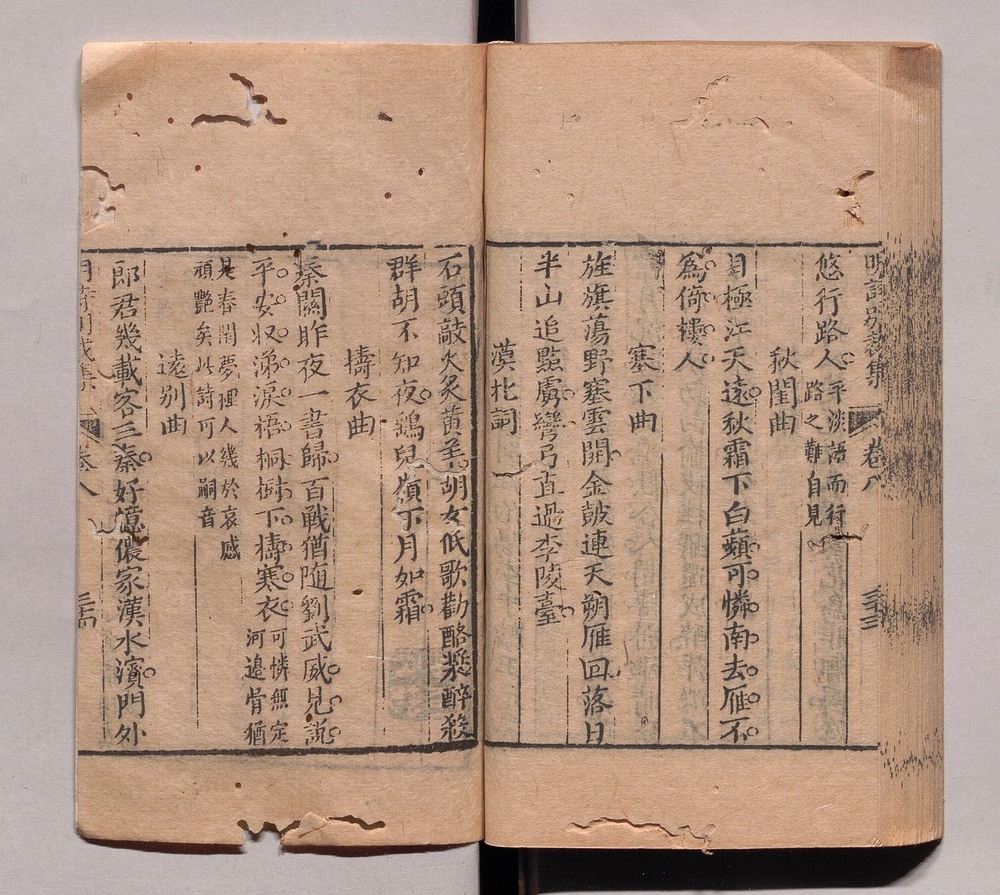 明詩別裁集 卷八 三三
悠行路人平淡語而行
路之難自見
秋閨曲
目極江天遠秋霜下白蘋可憐南去雁不
為倚樓人
塞下曲
旌旗蕩野塞雲開金鼓連天朔雁回落日
半山追黠虜彎弓直過李陵臺
漠北詞
石頭敲火炙黃羊胡女低歌勸酪漿醉殺
群胡不知夜鷂兒嶺下月如霜
擣衣曲
秦關昨夜一書歸百戰猶隨劉武威見說
平安收涕淚梧桐樹下擣寒衣可憐無定
河邊骨猶
是春閨夢裡人幾於哀感
頑艷矣以詩可以嗣音
遠別曲
郎君幾載客三秦好憶儂家漢水濱門外
卷八 三四